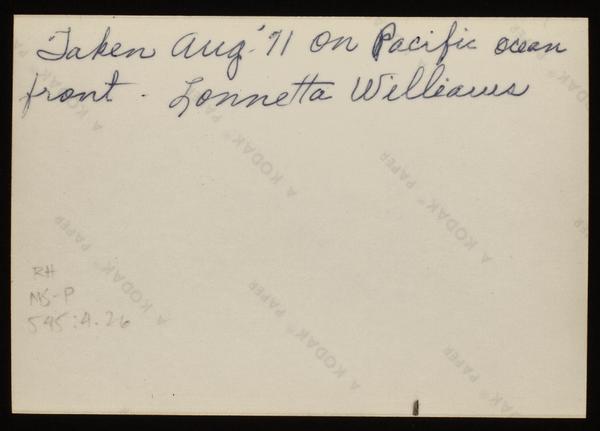 Taken Aug. '71 on Pacific ocean
front - Lonnetta Williams
A KODAK® PAPER
A KODAK® PAPER
A KODAK® PAPER
A KODAK® PAPER
A KODAK® PAPER
RH
MS-P
545:4.26
PAPER